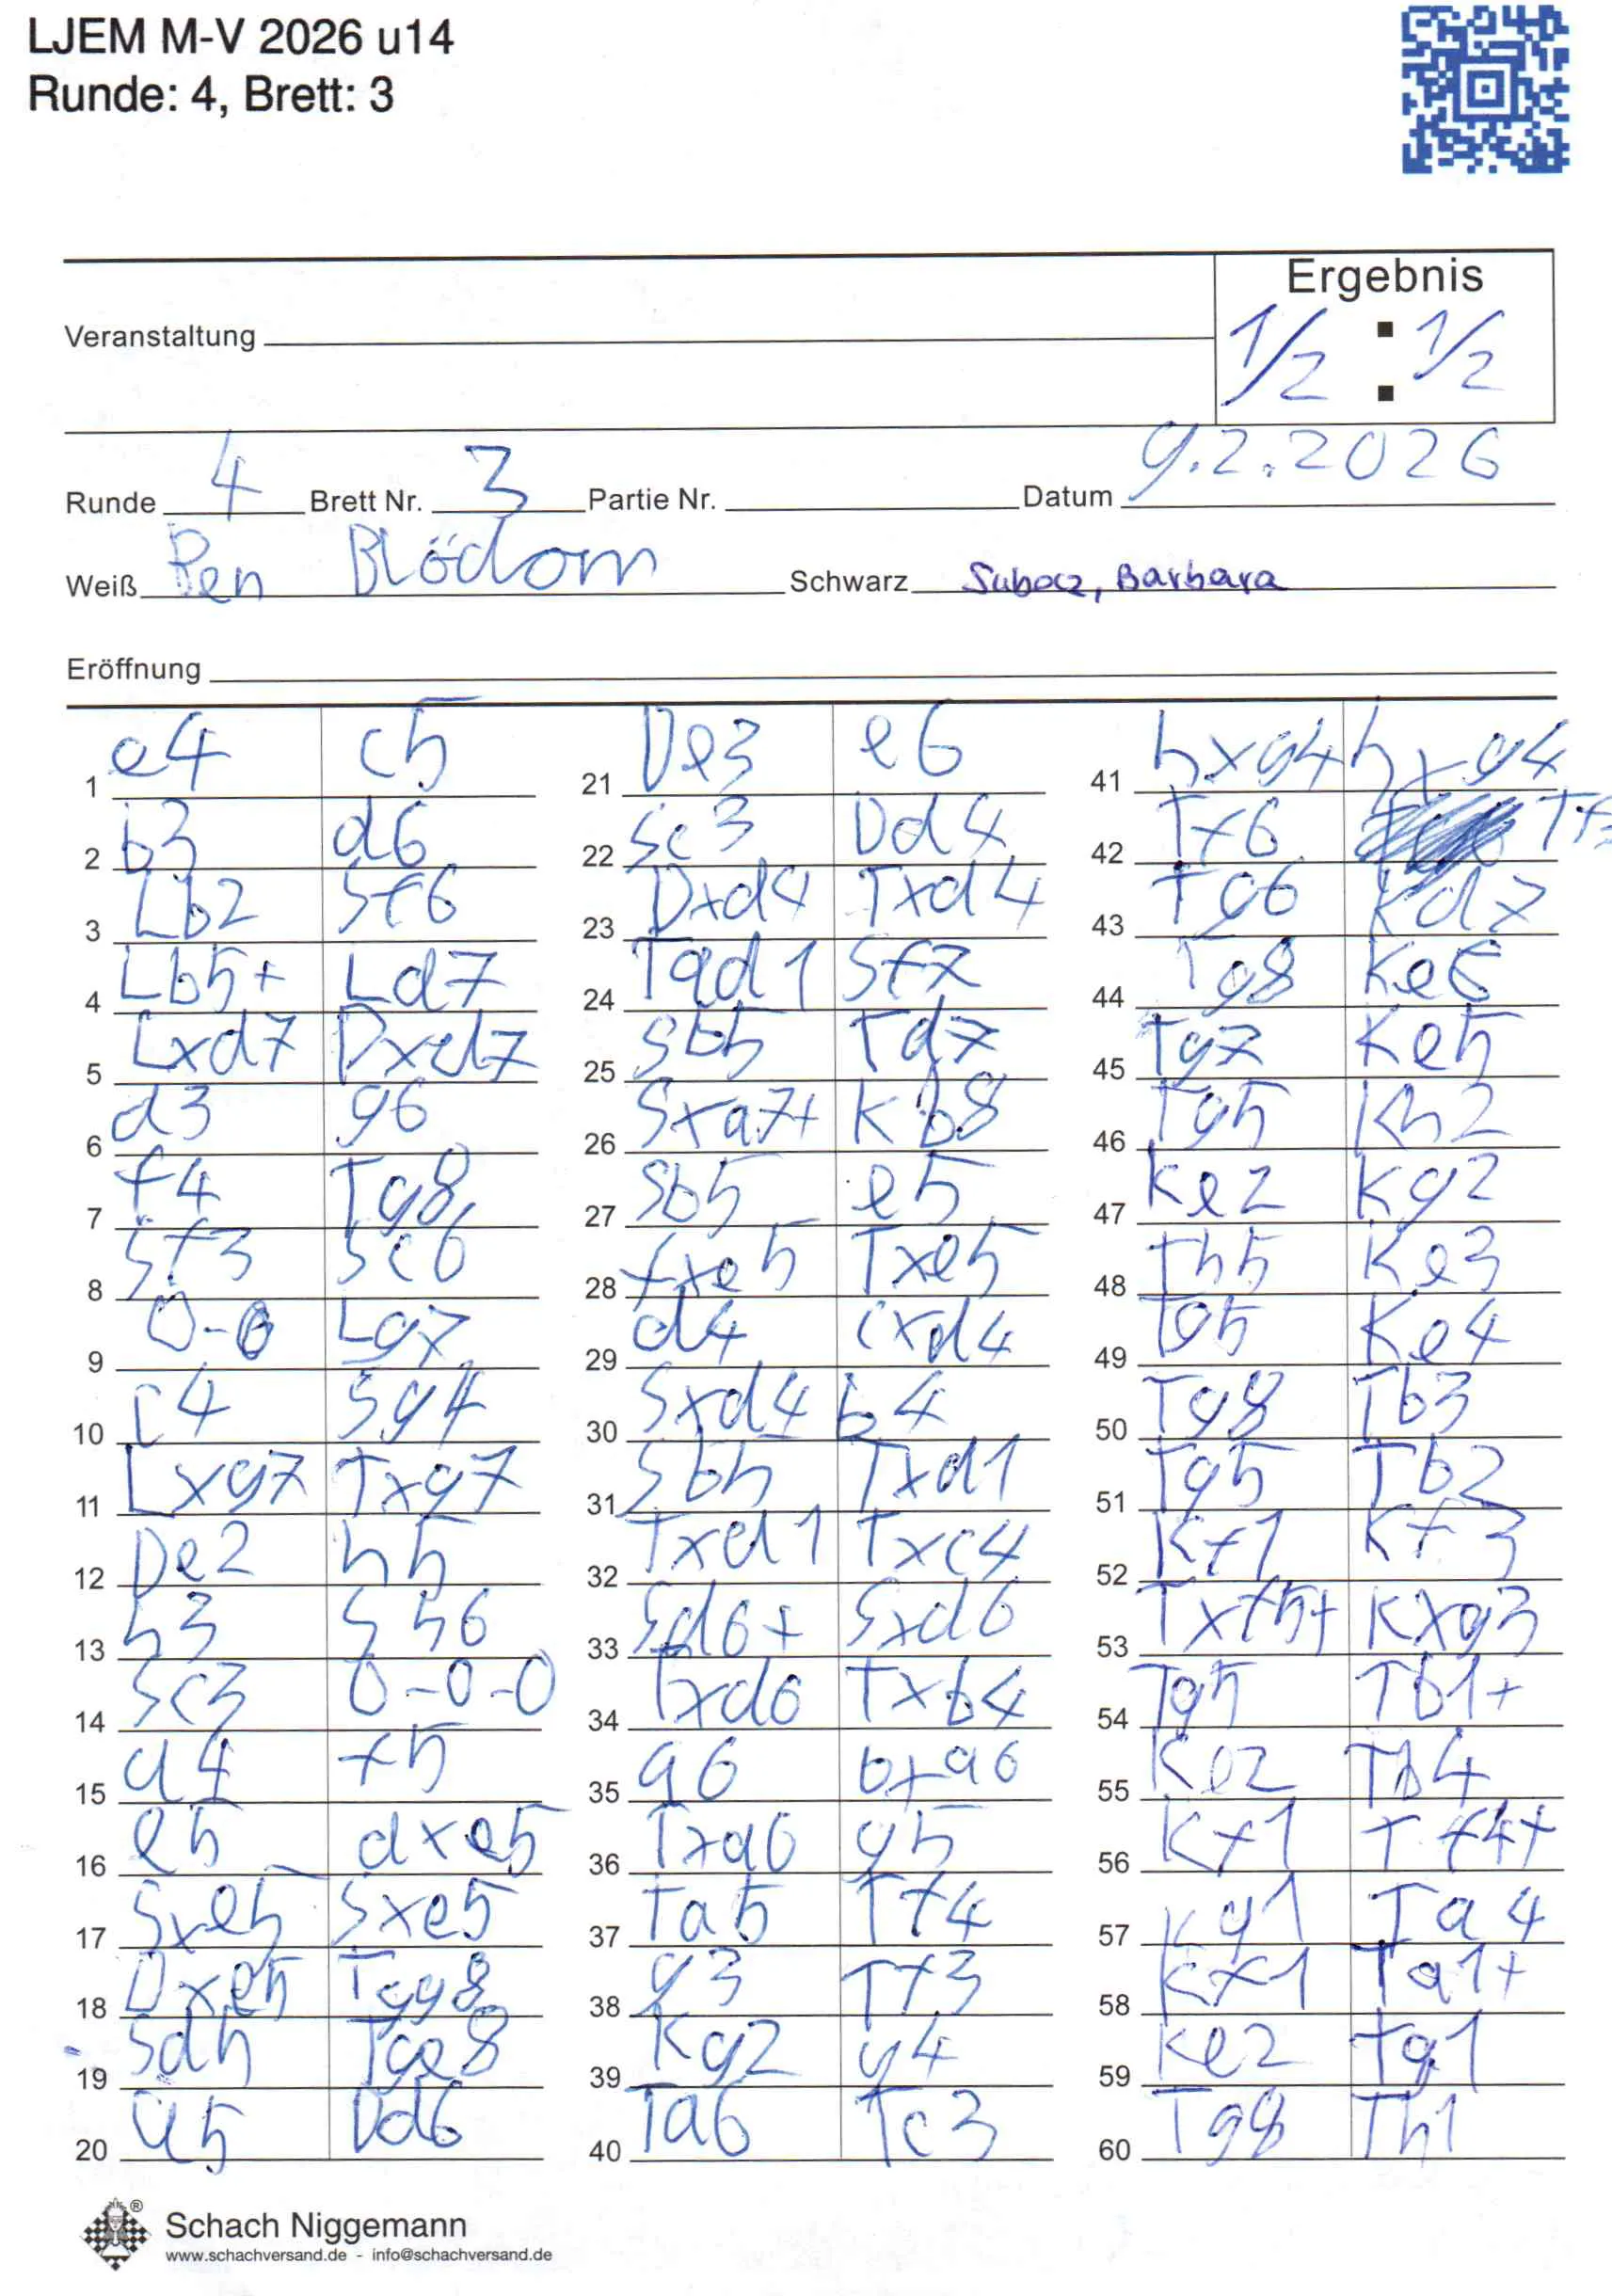 LJEM M-V 2026 u14
Runde: 4, Brett: 3
Ergebnis
Veranstaltung
1/2 : 1/2
Runde 4 Brett Nr. 3 Partie Nr. Datum 9.2.2026
Weiß Pen Blödorn Schwarz Subocz, Barbara
Eröffnung
1 e4 c5
2 b3 d6
3 Lb2 Sf6
4 Lb5+ Ld7
5 Lxd7 Dxd7
6 d3 g6
7 f4 Tg8
8 Sf3 Sc6
9 0-0 Lg7
10 c4 Sg4
11 Lxg7 Txg7
12 De2 h5
13 h3 Sh6
14 Sc3 0-0-0
15 a4 f5
16 e5 dxe5
17 Sxe5 Sxe5
18 Dxe5 Tgg8
19 Sd5 Tge8
20 a5 Dd6
21 De3 e6
22 Sc3 Dd4
23 Dxd4 Txd4
24 Tad1 Sf7
25 Sb5 Td7
26 Sxa7+ Kb8
27 Sb5 e5
28 fxe5 Txe5
29 d4 cxd4
30 Sxd4 b4
31 Sb5 Txd1
32 Txd1 Txc4
33 Sd6+ Sxd6
34 Txd6 Txb4
35 a6 bxa6
36 Txa6 g5
37 Ta5 Tf4
38 g3 Tf3
39 Kg2 g4
40 Ta6 Tc3
41 hxg4 hxg4
42 Tf6
43 Tg6 Kd7
44 Tg8 Ke6
45 Tg7 Ke5
46 Tg5 Kh2
47 Ke2 Kg2
48 Th5 Ke3
49 Tg5 Ke4
50 Tg8 Tb3
51 Tg5 Tb2
52 Kf1 Kf3
53 Txf5+ Kxg3
54 Tg5 Tb1+
55 Ke2 Tb4
56 Kf1 Tf4+
57 Kg1 Ta4
58 Kf1 Ta1+
59 Ke2 Tg1
60 Tg8 Th1
Schach Niggemann
www.schachversand.de - info@schachversand.de